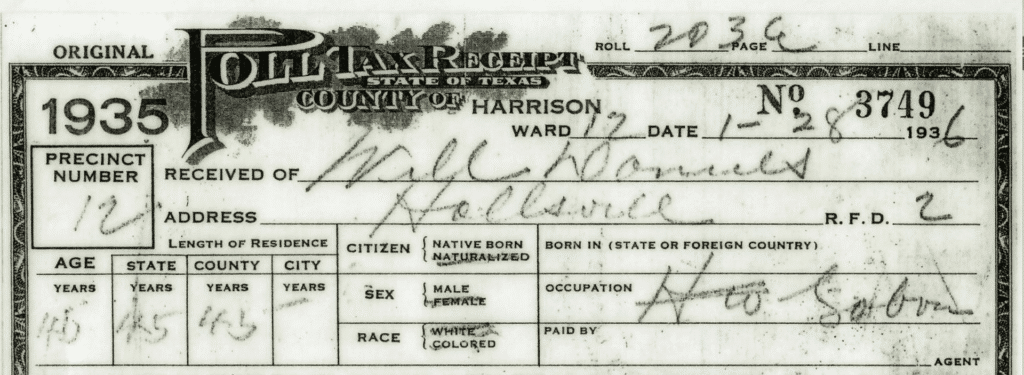 ORIGINAL POLL TAX RECEIPT ROLL 203 PAGE LINE
STATE OF TEXAS
1935 COUNTY OF HARRISON Nº 3749
WARD 12 DATE 1-28 1936
PRECINCT NUMBER 12
RECEIVED OF Will Daniels
ADDRESS Hallsvill R.F.D. 2
LENGTH OF RESIDENCE
AGE STATE COUNTY CITY
YEARS YEARS YEARS YEARS
45 45 45 —
CITIZEN { NATIVE BORN
NATURALIZED
SEX { MALE
FEMALE
RACE { WHITE
COLORED
BORN IN (STATE OR FOREIGN COUNTRY)
OCCUPATION
PAID BY
AGENT